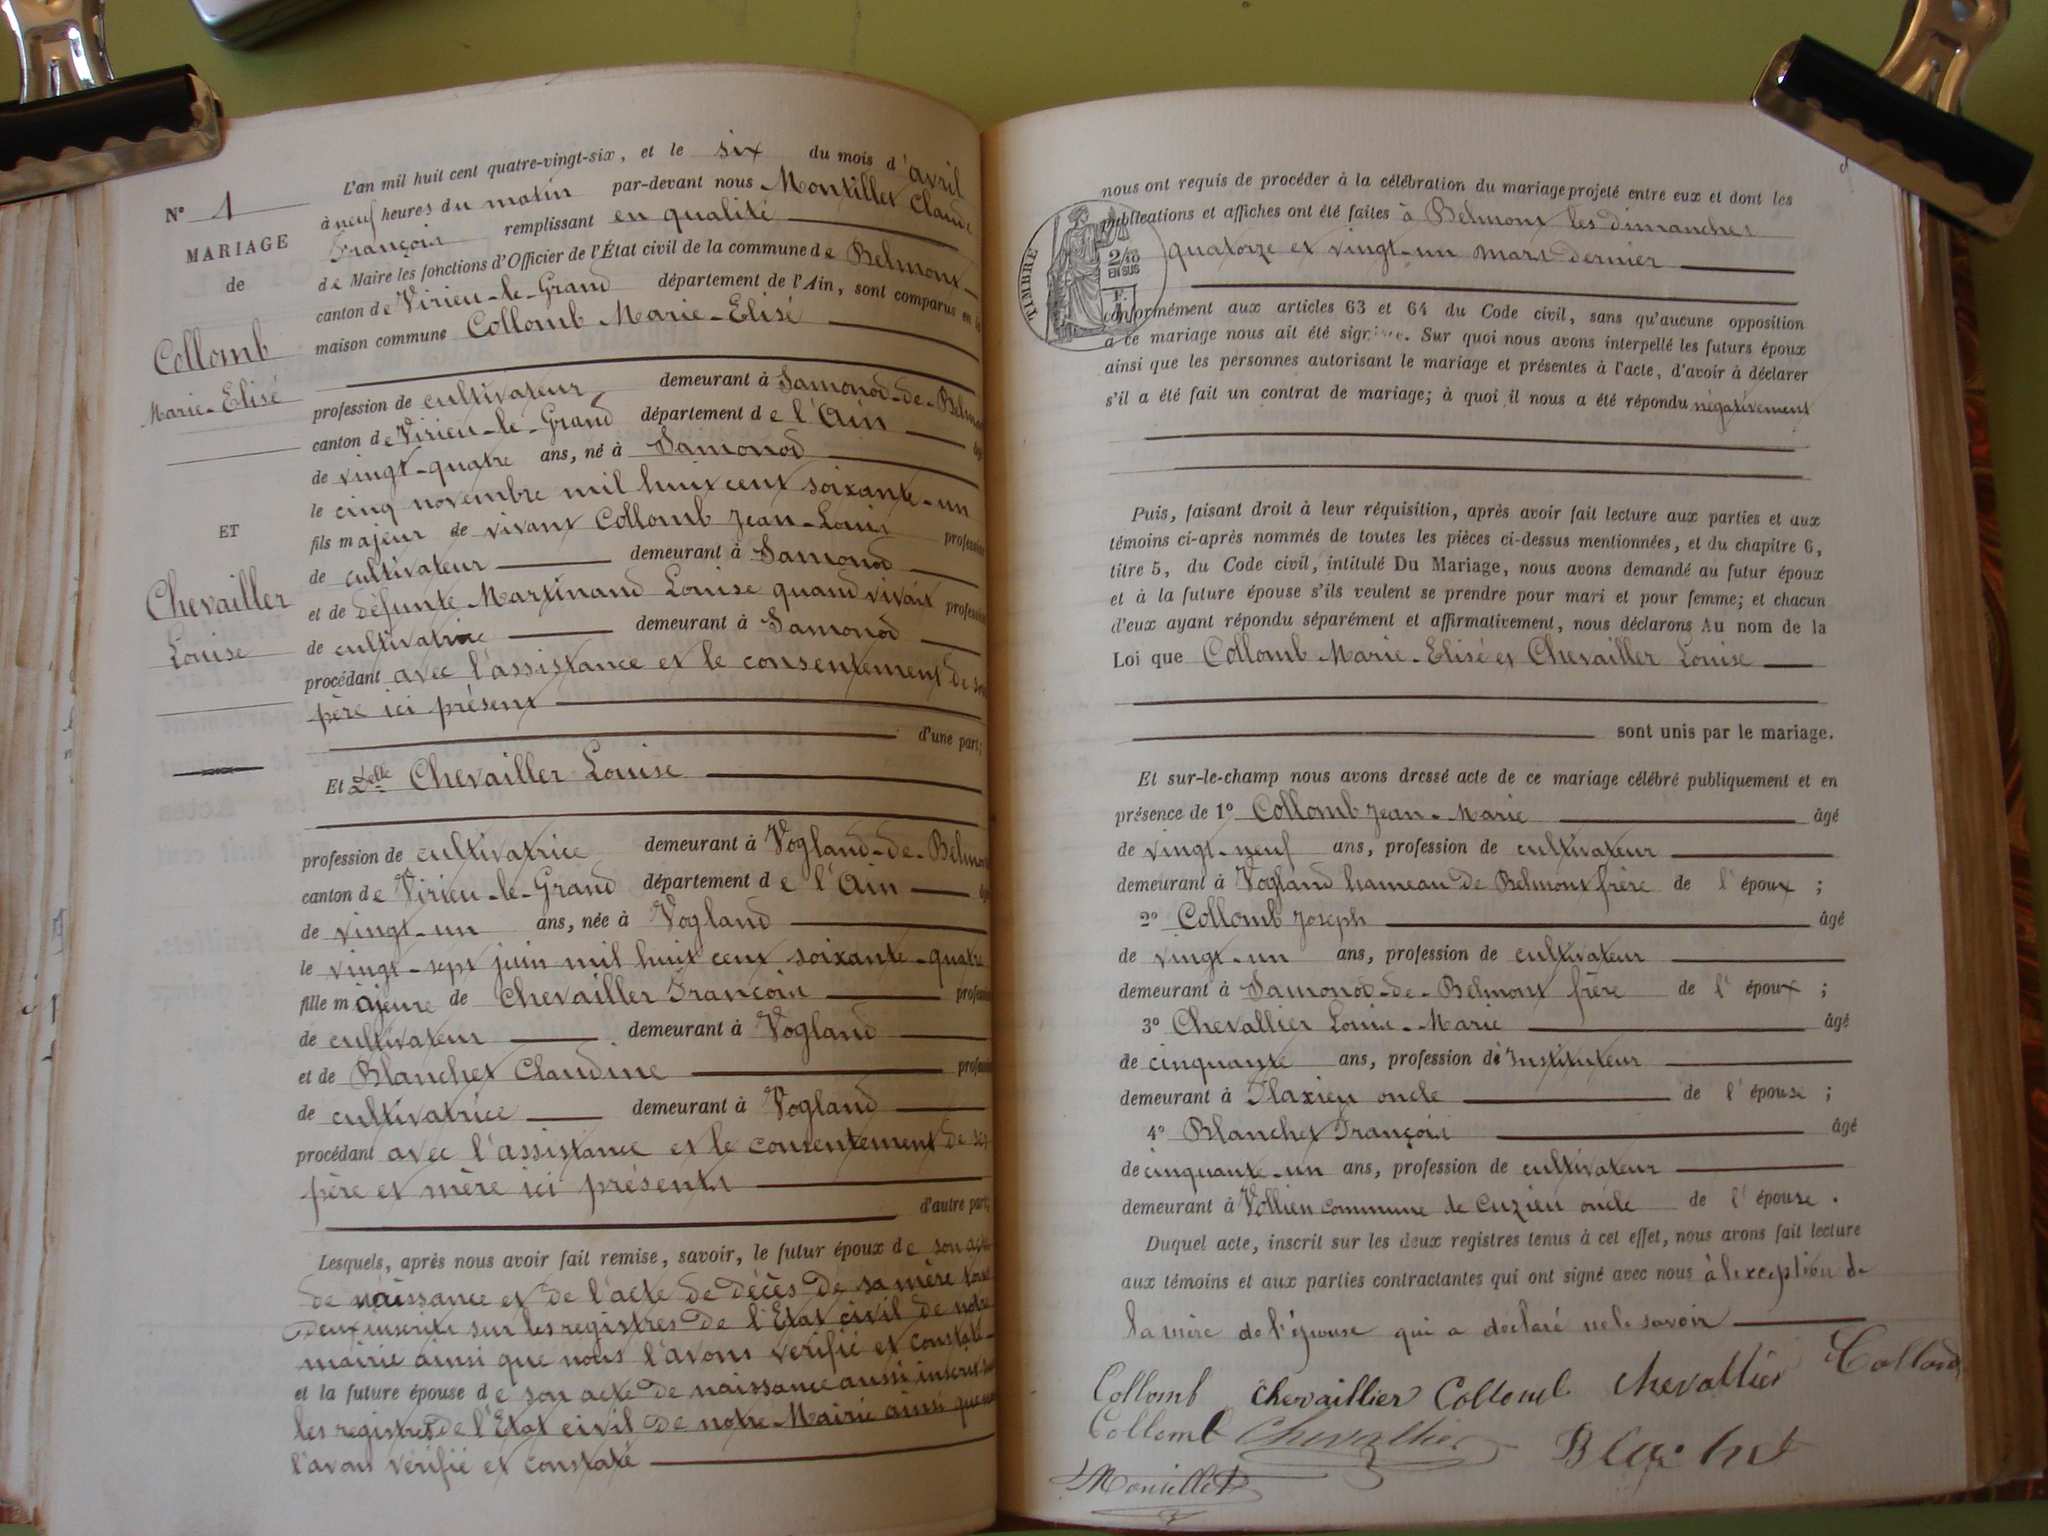 N° 1
MARIAGE
de
Collomb
Marie-Elisé
ET
Chevailler
Louise
L'an mil huit cent quatre-vingt-six, et le six du mois d'avril
à neuf heures du matin par-devant nous Montillet Claude
François remplissant en qualité
de Maire les fonctions d'Officier de l'État civil de la commune de Belmont
canton de Virieu-le-Grand département de l'Ain, sont comparus en la
maison commune Collomb Marie-Elisé
profession de cultivateur demeurant à Samonod-de-Belmont
canton de Virieu-le-Grand département de l'Ain âgé
de vingt-quatre ans, né à Samonod
le cinq novembre mil huit cent soixante-un
fils majeur de vivant Collomb Jean-Louis profession
de cultivateur demeurant à Samonod
et de défunte Martinand Louise quand vivait profession
de cultivatrice demeurant à Samonod
procédant avec l'assistance et le consentement de son
père ici présent
d'une part;
Et Delle Chevailler Louise
profession de cultivatrice demeurant à Vogland-de-Belmont
canton de Virieu-le-Grand département de l'Ain âgé
de vingt-un ans, née à Vogland
le vingt-sept juin mil huit cent soixante-quatre
fille majeure de Chevailler François profession
de cultivateur demeurant à Vogland
et de Blanchet Claudine profession
de cultivatrice demeurant à Vogland
procédant avec l'assistance et le consentement de ses
père et mère ici présents
d'autre part;
Lesquels, après nous avoir fait remise, savoir, le futur époux de son acte
de naissance et de l'acte de décès de sa mère tous
deux inscrits sur les registres de l'Etat civil de notre
mairie ainsi que nous l'avons vérifié et constaté
et la future épouse de son acte de naissance aussi inscrit sur
les registres de l'Etat civil de notre Mairie ainsi que nous
l'avons vérifié et constaté
nous ont requis de procéder à la célébration du mariage projeté entre eux et dont les
publications et affiches ont été faites à Belmont les dimanches
quatorze et vingt-un mars dernier
TIMBRE
2/10
EN SUS
conformément aux articles 63 et 64 du Code civil, sans qu'aucune opposition
à ce mariage nous ait été signifiée. Sur quoi nous avons interpellé les futurs époux
ainsi que les personnes autorisant le mariage et présentes à l'acte, d'avoir à déclarer
s'il a été fait un contrat de mariage; à quoi il nous a été répondu négativement
Puis, faisant droit à leur réquisition, après avoir fait lecture aux parties et aux
témoins ci-après nommés de toutes les pièces ci-dessus mentionnées, et du chapitre 6,
titre 5, du Code civil, intitulé Du Mariage, nous avons demandé au futur époux
et à la future épouse s'ils veulent se prendre pour mari et pour femme; et chacun
d'eux ayant répondu séparément et affirmativement, nous déclarons Au nom de la
Loi que Collomb Marie-Elisé et Chevailler Louise
sont unis par le mariage.
Et sur-le-champ nous avons dressé acte de ce mariage célébré publiquement et en
présence de 1° Collomb Jean-Marie âgé
de vingt-neuf ans, profession de cultivateur
demeurant à Vogland hameau de Belmont frère de l'époux;
2° Collomb Joseph âgé
de vingt-un ans, profession de cultivateur
demeurant à Samonod-de-Belmont frère de l'époux;
3° Chevallier Louis-Marie âgé
de cinquante ans, profession d'Instituteur
demeurant à Flaxieu oncle de l'épouse;
4° Blanchet François âgé
de cinquante-un ans, profession de cultivateur
demeurant à Vollien commune de Cuzieu oncle de l'épouse.
Duquel acte, inscrit sur les deux registres tenus à cet effet, nous avons fait lecture
aux témoins et aux parties contractantes qui ont signé avec nous à l'exception de
la mère de l'épouse qui a déclaré ne le savoir
Collomb chevaillier Collomb chevallier Collomb
Collomb Chevallier Blachet
Montillet